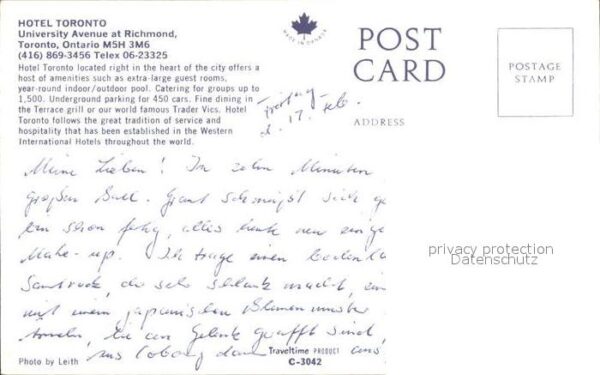 HOTEL TORONTO
University Avenue at Richmond,
Toronto, Ontario M5H 3M6
(416) 869-3456 Telex 06-23325
Hotel Toronto located right in the heart of the city offers a
host of amenities such as extra-large guest rooms,
year-round indoor/outdoor pool. Catering for groups up to
1,500. Underground parking for 450 cars. Fine dining in
the Terrace grill or our world famous Trader Vics. Hotel
Toronto follows the great tradition of service and
hospitality that has been established in the Western
International Hotels throughout the world.
MADE IN CANADA
POST
CARD
ADDRESS
POSTAGE
STAMP
Freitag
d. 17. Feb.
Meine Lieben! In zehn Minuten
großen Ball. schmeißt sich
ein schon fertig, alles
Make-up. Ich trage einen
der sehr schlank macht,
mit einem japanischen Blumenmuster
die am Gelenk gerafft sind,
aus Coburg
privacy protection
Datenschutz
Photo by Leith
Traveltime PRODUCT
C-3042